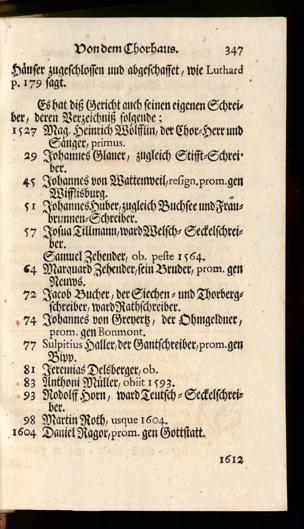 Von dem Chorhaus. 347
Häuser zugeschlossen und abgeschaffet, wie Luthard
p. 179 sagt.
Es hat diß Gericht auch seinen eigenen Schrei-
ber, deren Verzeichniß folgende:
1527 Mag. Heinrich Wölfflin, der Chor-Herr und
Sänger, primus.
29 Johannes Glaner, zugleich Stifft-Schrei-
ber.
45 Johannes von Wattenweil, resign. prom. gen
Wifflisburg.
51 Johannes Huber, zugleich Buchsee und Frau-
brunnen-Schreiber.
57 Josua Tillmann, ward Welsch-Seckelschrei-
ber.
Samuel Zehender, ob. peste 1564.
64 Marquard Zehender, sein Bruder, prom. gen
Neuws.
72 Jacob Bucher, der Siechen- und Thorberg-
schreiber, ward Rathschreiber.
74 Johannes von Greyertz, der Ohmgeldner,
prom. gen Bonmont.
77 Sulpitius Haller, der Gantschreiber, prom. gen
Bipp.
81 Jeremias Delsberger, ob.
83 Anthoni Müller, obiit 1593.
93 Rodolff Horn, ward Teutsch-Seckelschrei-
ber.
98 Martin Roth, usque 1604.
1604 Daniel Ragor, prom. gen Gottstatt.
1612